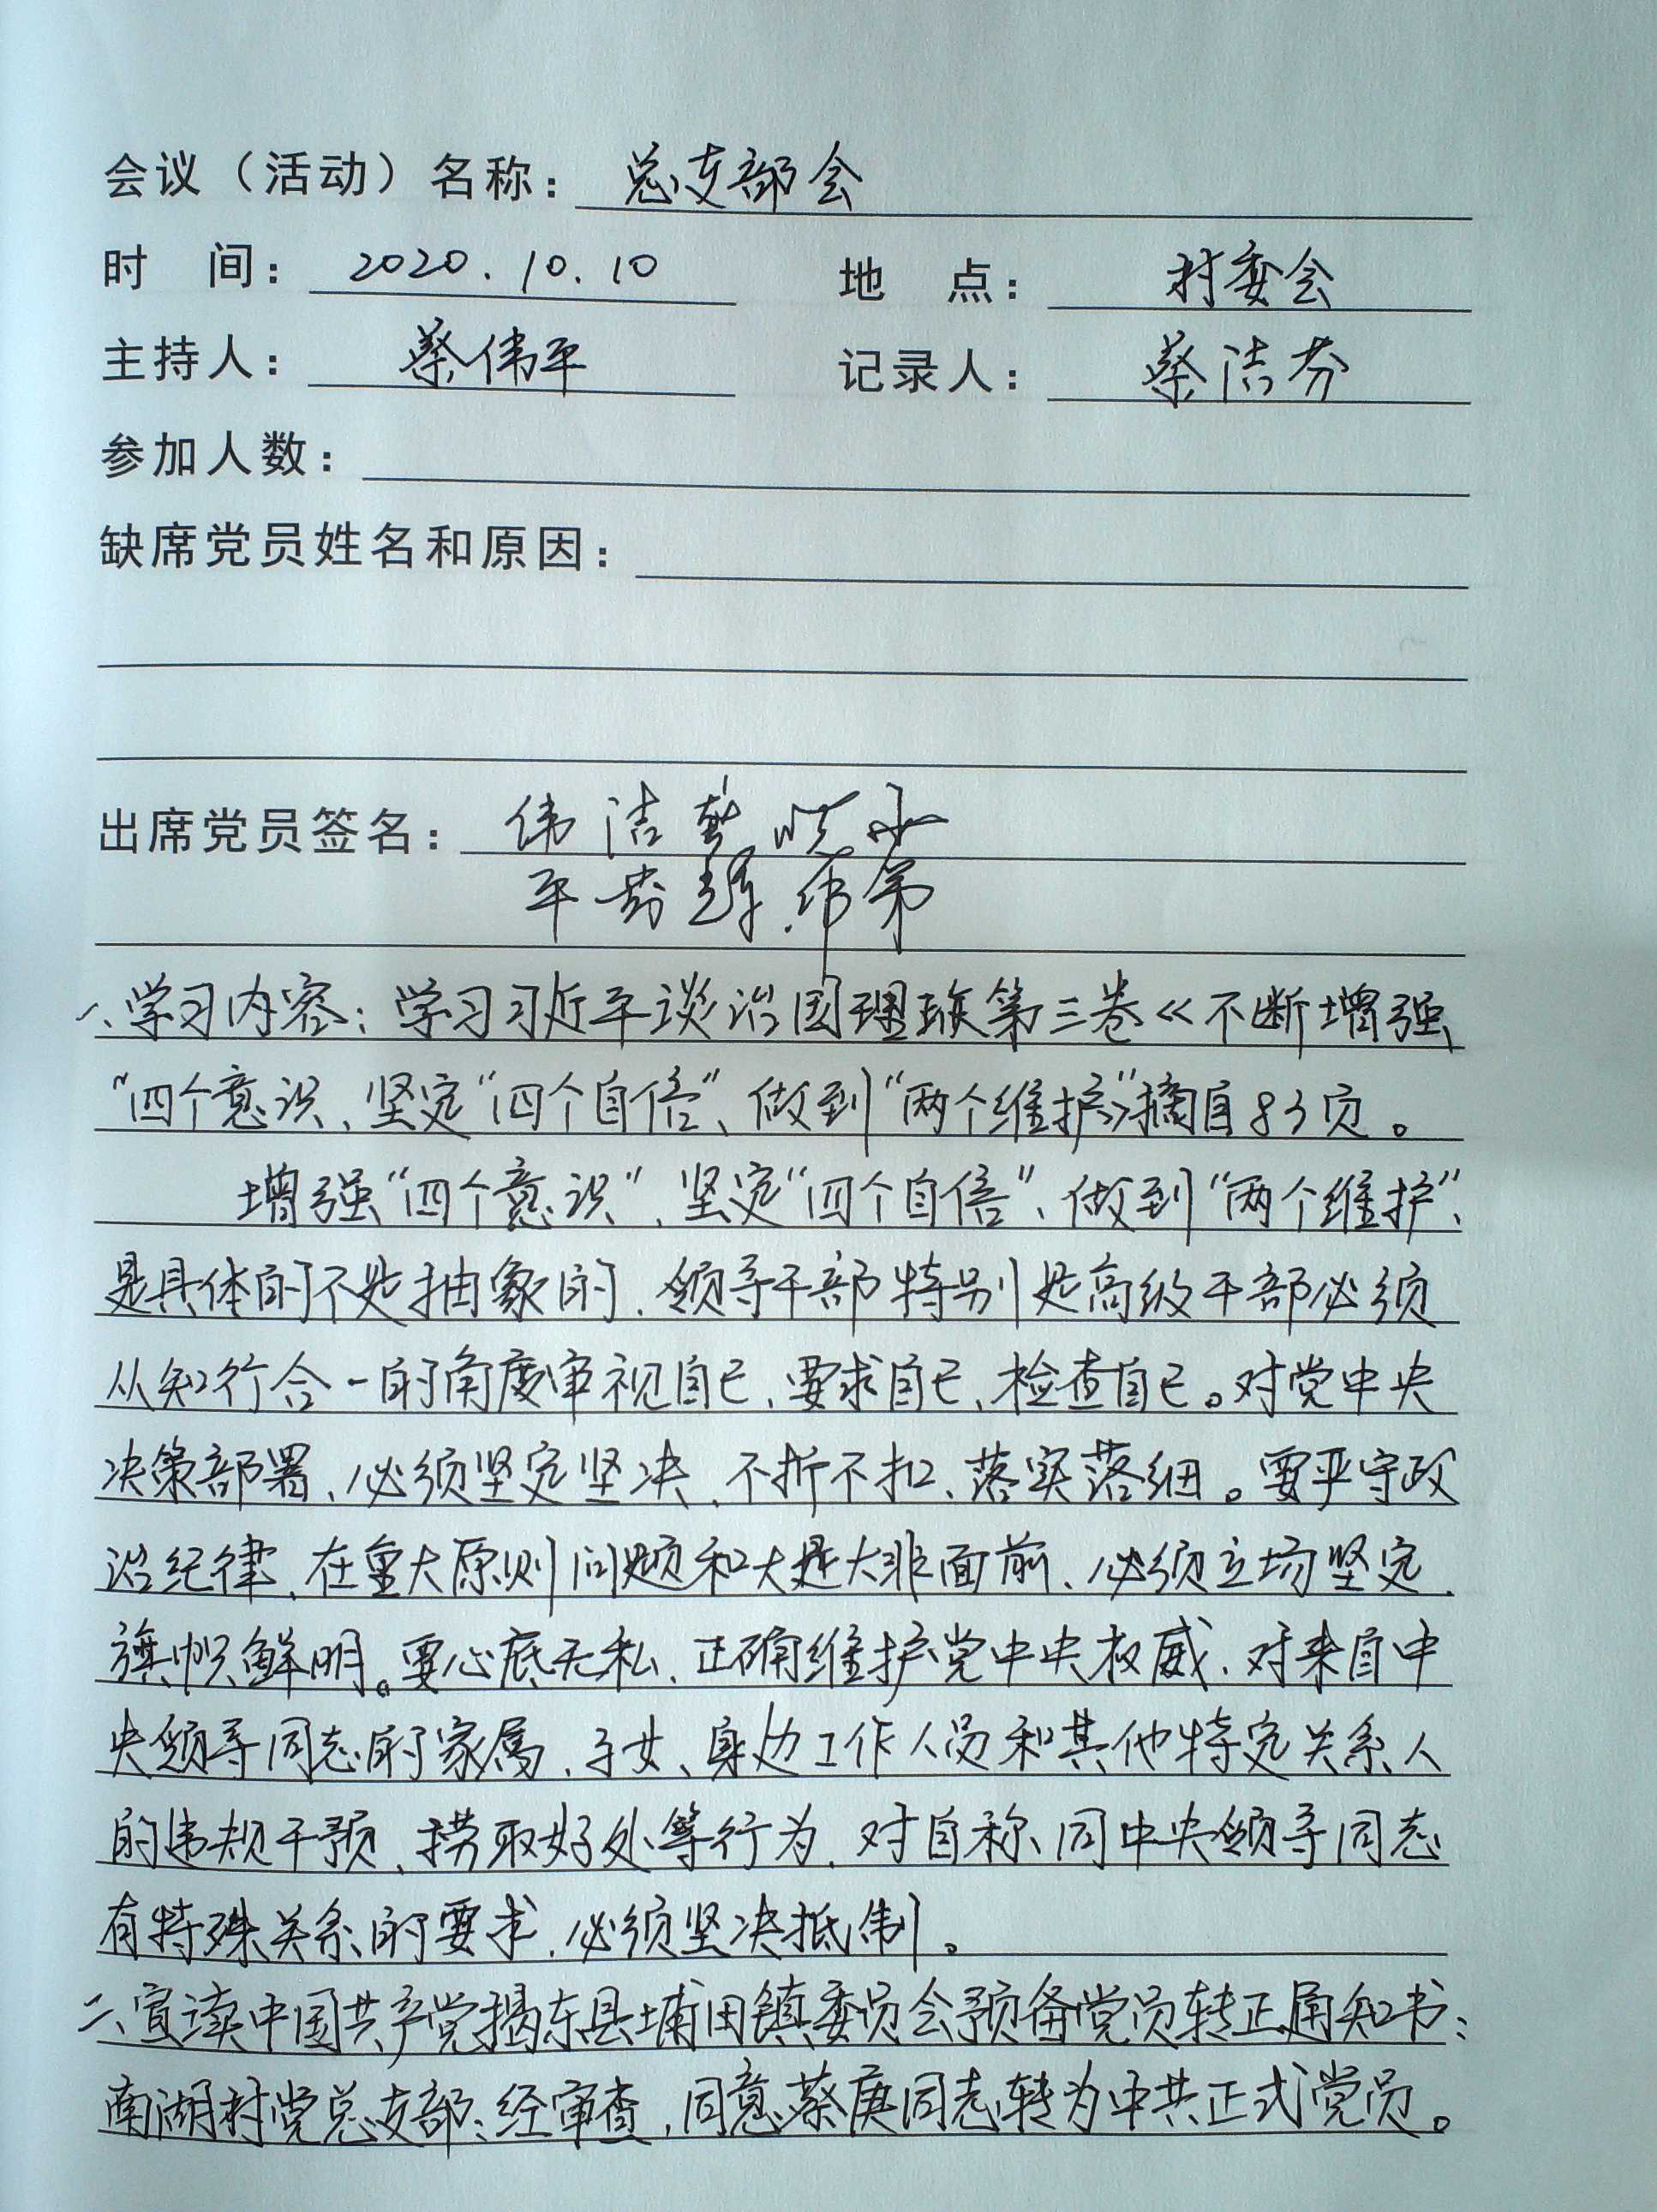 会议（活动）名称：总支部会
时 间：2020.10.10 地 点：村委会
主持人：蔡伟平 记录人：蔡洁芬
参加人数：
缺席党员姓名和原因：
出席党员签名：伟 洁
平 芬
一、学习内容：学习习近平谈治国理政第三卷《不断增强
“四个意识、坚定“四个自信”、做到“两个维护》摘自83页。
增强“四个意识”、坚定“四个自信”、做到“两个维护”、
是具体的不是抽象的、领导干部特别是高级干部必须
从知行合一的角度审视自己、要求自己、检查自己。对党中央
决策部署、必须坚定坚决、不折不扣、落实落细。要严守政
治纪律、在重大原则问题和大是大非面前、必须立场坚定、
旗帜鲜明。要心底无私、正确维护党中央权威、对来自中
央领导同志的家属、子女、身边工作人员和其他特定关系人
的违规干预、捞取好处等行为、对自称同中央领导同志
有特殊关系的要求、必须坚决抵制。
二、宣读中国共产党揭东县埔田镇委员会预备党员转正通知书：
南湖村党总支部：经审查，同意蔡庚同志转为中共正式党员。